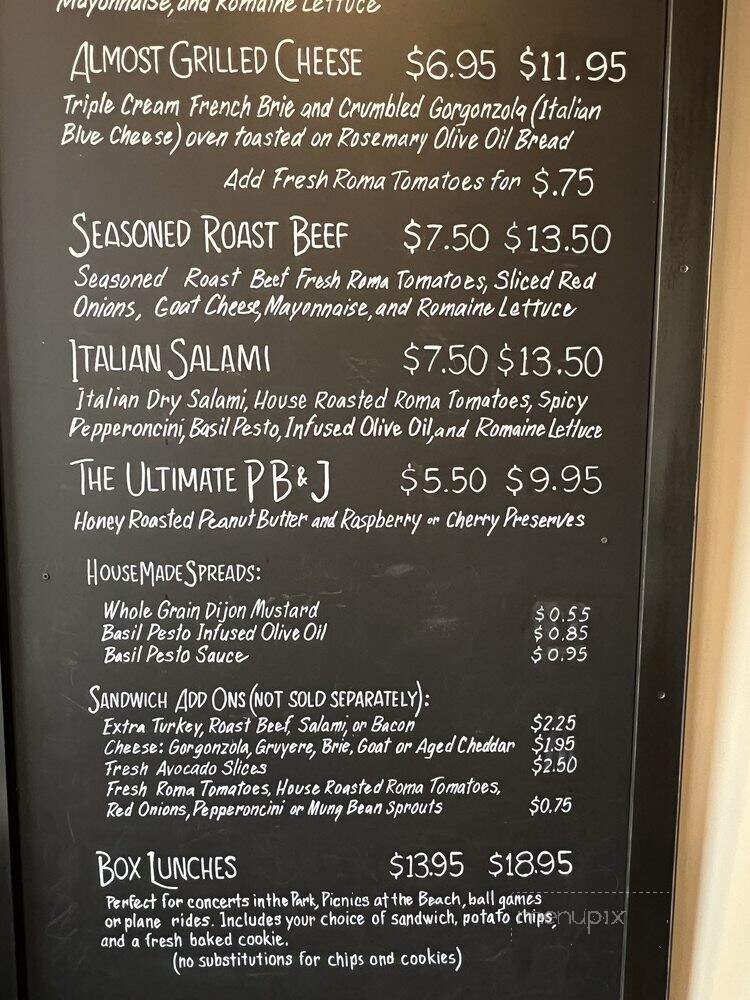 Mayonnaise, and Romaine Lettuce
ALMOST GRILLED CHEESE $6.95 $11.95
Triple Cream French Brie and Crumbled Gorgonzola (Italian
Blue Cheese) oven toasted on Rosemary Olive Oil Bread
Add Fresh Roma Tomatoes for $.75
SEASONED ROAST BEEF $7.50 $13.50
Seasoned Roast Beef Fresh Roma Tomatoes, Sliced Red
Onions, Goat Cheese, Mayonnaise, and Romaine Lettuce
ITALIAN SALAMI $7.50 $13.50
Italian Dry Salami, House Roasted Roma Tomatoes, Spicy
Pepperoncini, Basil Pesto, Infused Olive Oil, and Romaine Lettuce
THE ULTIMATE PB&J $5.50 $9.95
Honey Roasted Peanut Butter and Raspberry or Cherry Preserves
HOUSE MADE SPREADS:
Whole Grain Dijon Mustard $0.55
Basil Pesto Infused Olive Oil $0.85
Basil Pesto Sauce $0.95
SANDWICH ADD ONS (NOT SOLD SEPARATELY):
Extra Turkey, Roast Beef, Salami, or Bacon $2.25
Cheese: Gorgonzola, Gruyere, Brie, Goat or Aged Cheddar $1.95
Fresh Avocado Slices $2.50
Fresh Roma Tomatoes, House Roasted Roma Tomatoes,
Red Onions, Pepperoncini or Mung Bean Sprouts $0.75
BOX LUNCHES $13.95 $18.95
Perfect for concerts in the Park, Picnics at the Beach, ball games
or plane rides. Includes your choice of sandwich, potato chips,
and a fresh baked cookie.
(no substitutions for chips and cookies)
menupix